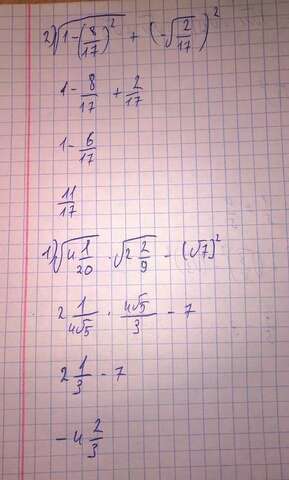 2) √(1-(8/17)²) + (-√(2/17))²
1 - 8/17 + 2/17
1 - 6/17
11/17
1) √(4 1/20) · √(2 2/9) - (√7)²
2 1/(4√5) · 4√5/3 - 7
2 1/3 - 7
-4 2/3